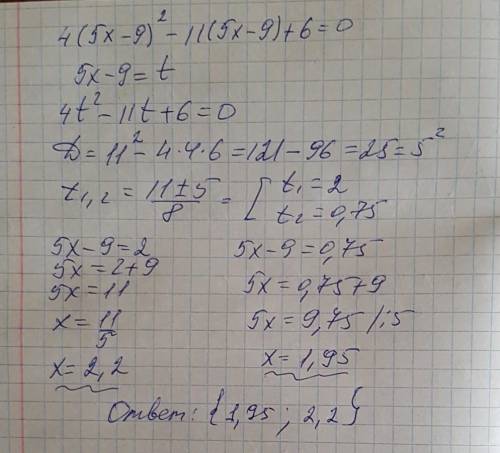 4(5x-9)² - 11(5x-9)+6=0
5x-9=t
4t²-11t+6=0
D=11²-4·4·6=121-96=25=5²
t₁,₂ = (11±5)/8 = [ t₁=2
t₂=0,75
5x-9=2
5x=2+9
5x=11
x=11/5
x=2,2
5x-9=0,75
5x=0,75+9
5x=9,75 /:5
x=1,95
Ответ: {1,95 ; 2,2}